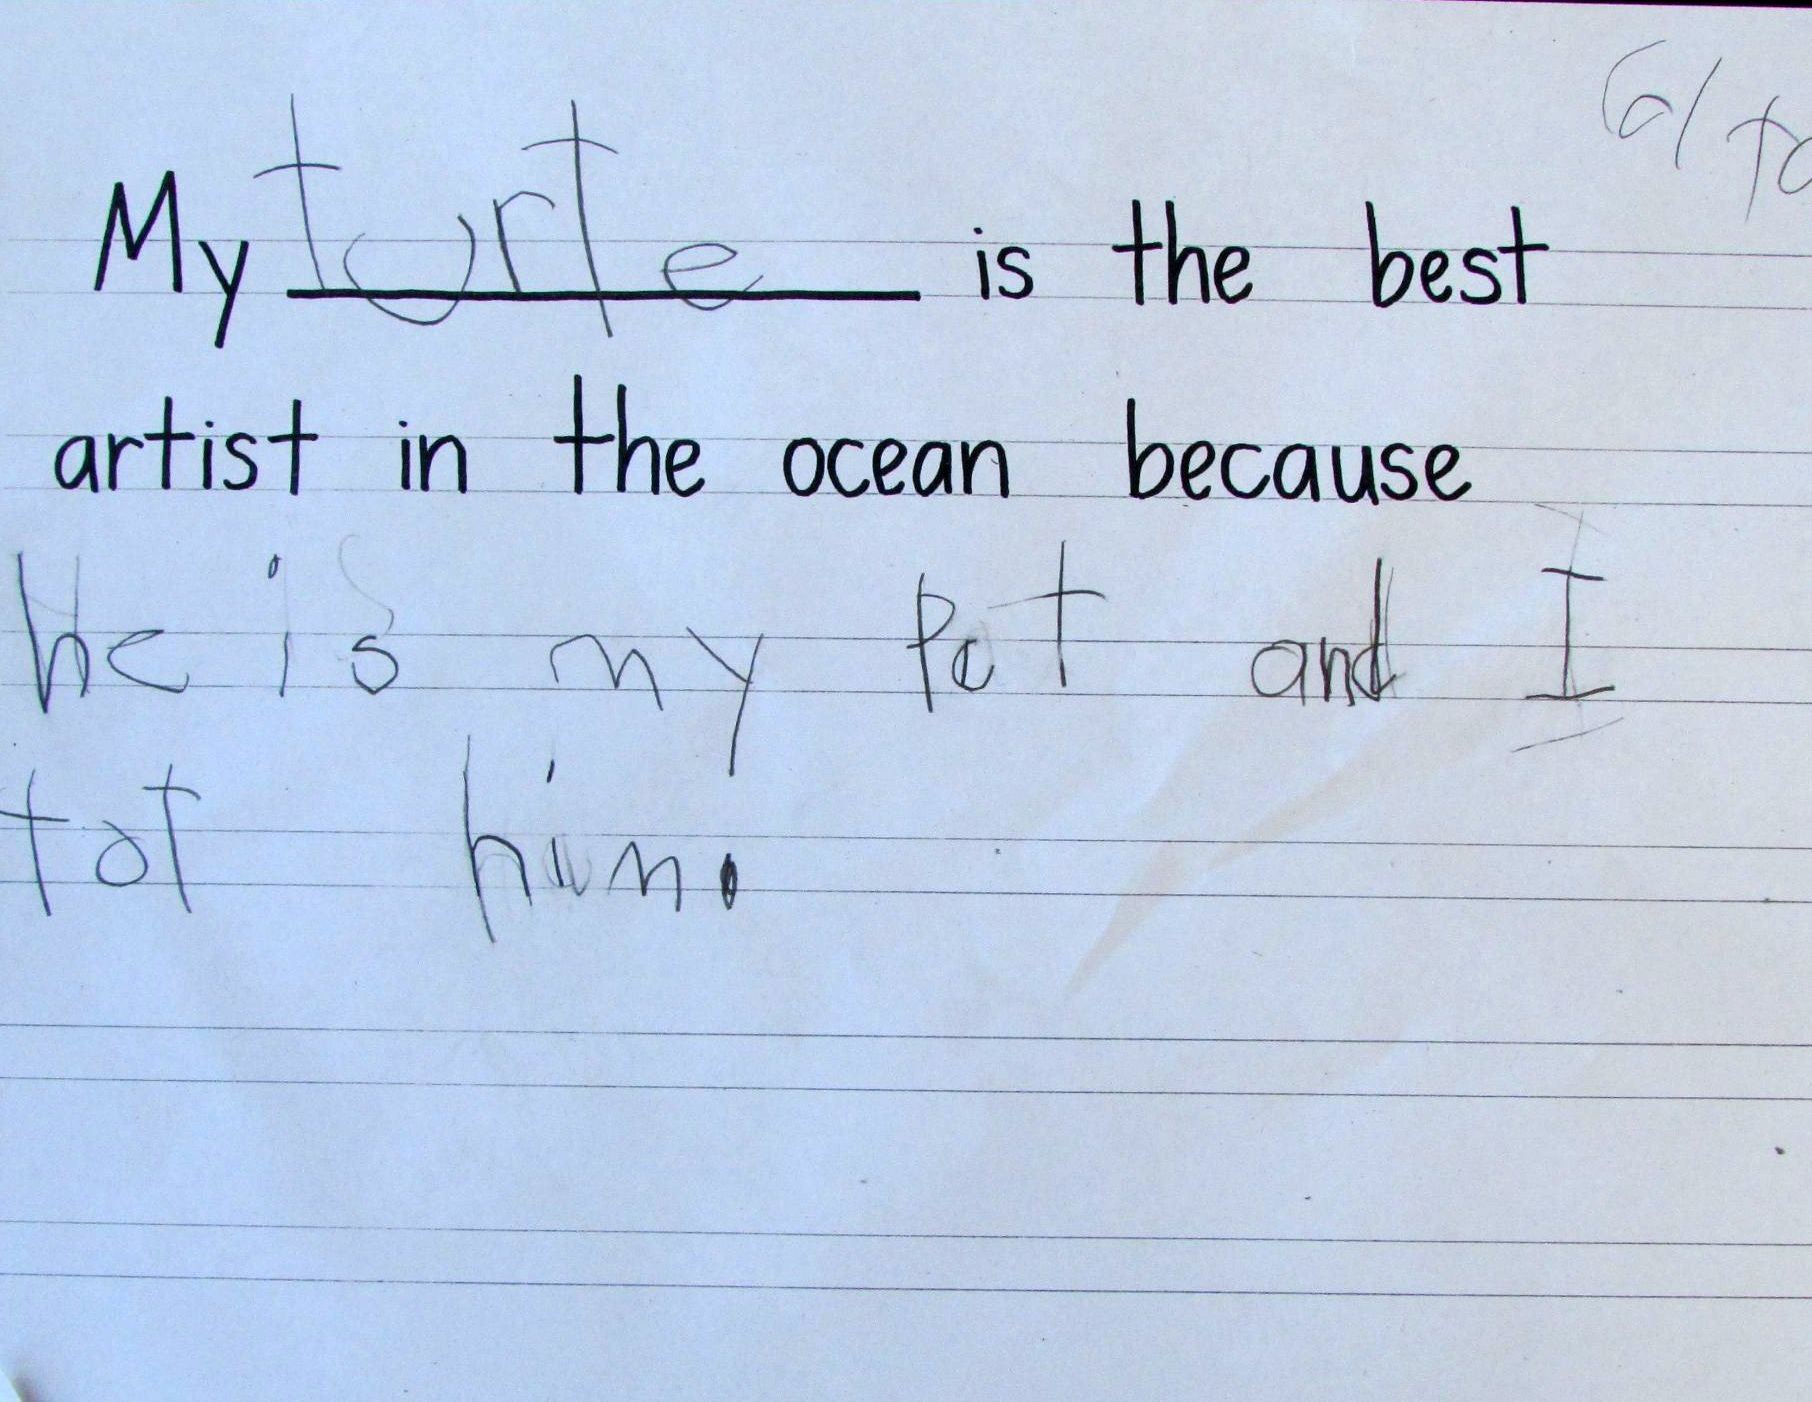 My turte is the best
artist in the ocean because
he is my pet and I
tot him.